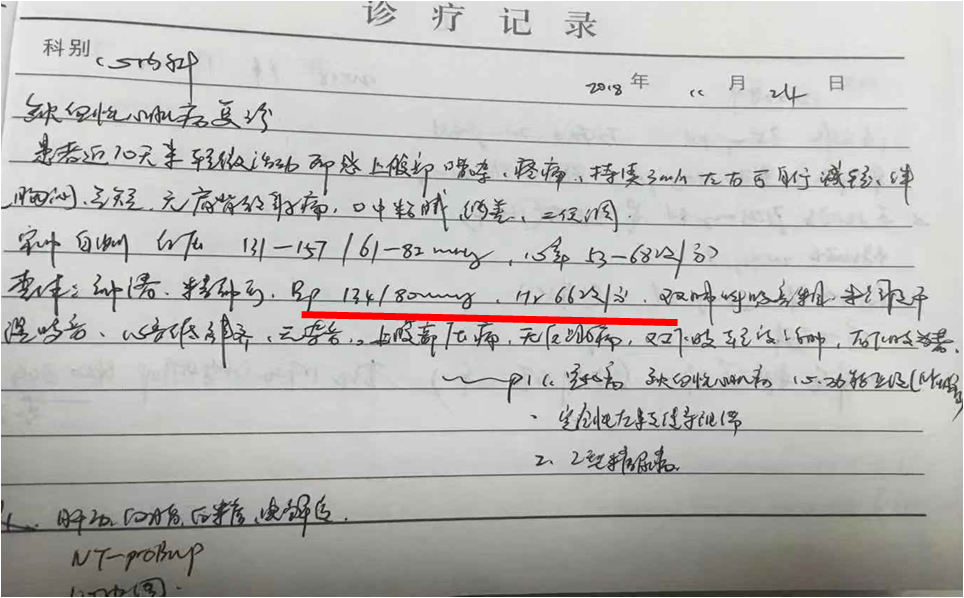 诊疗记录
科别 心内科
2018年 11月 24日
缺血性心肌病复诊
患者近10天来轻微活动即感上腹部嘈杂、疼痛、持续3min左右可自行减轻、伴
胸闷、气短、无肩背放射痛、口中粘腻、纳差、二便调.
家中自测血压 131-157/61-82mmHg,心率53-68次/分
查体:神清、精神可,Bp 134/80mmHg,Hr 66次/分,双肺呼吸音粗,未闻及干
湿啰音、心音低钝,无杂音,上腹部压痛,无反跳痛,双下肢轻度浮肿,
1. 冠心病 缺血性心肌病 心功能
完全性左束支传导阻滞
2、2型糖尿病
肝功,血脂,血糖,电解质.
NT-proBnp